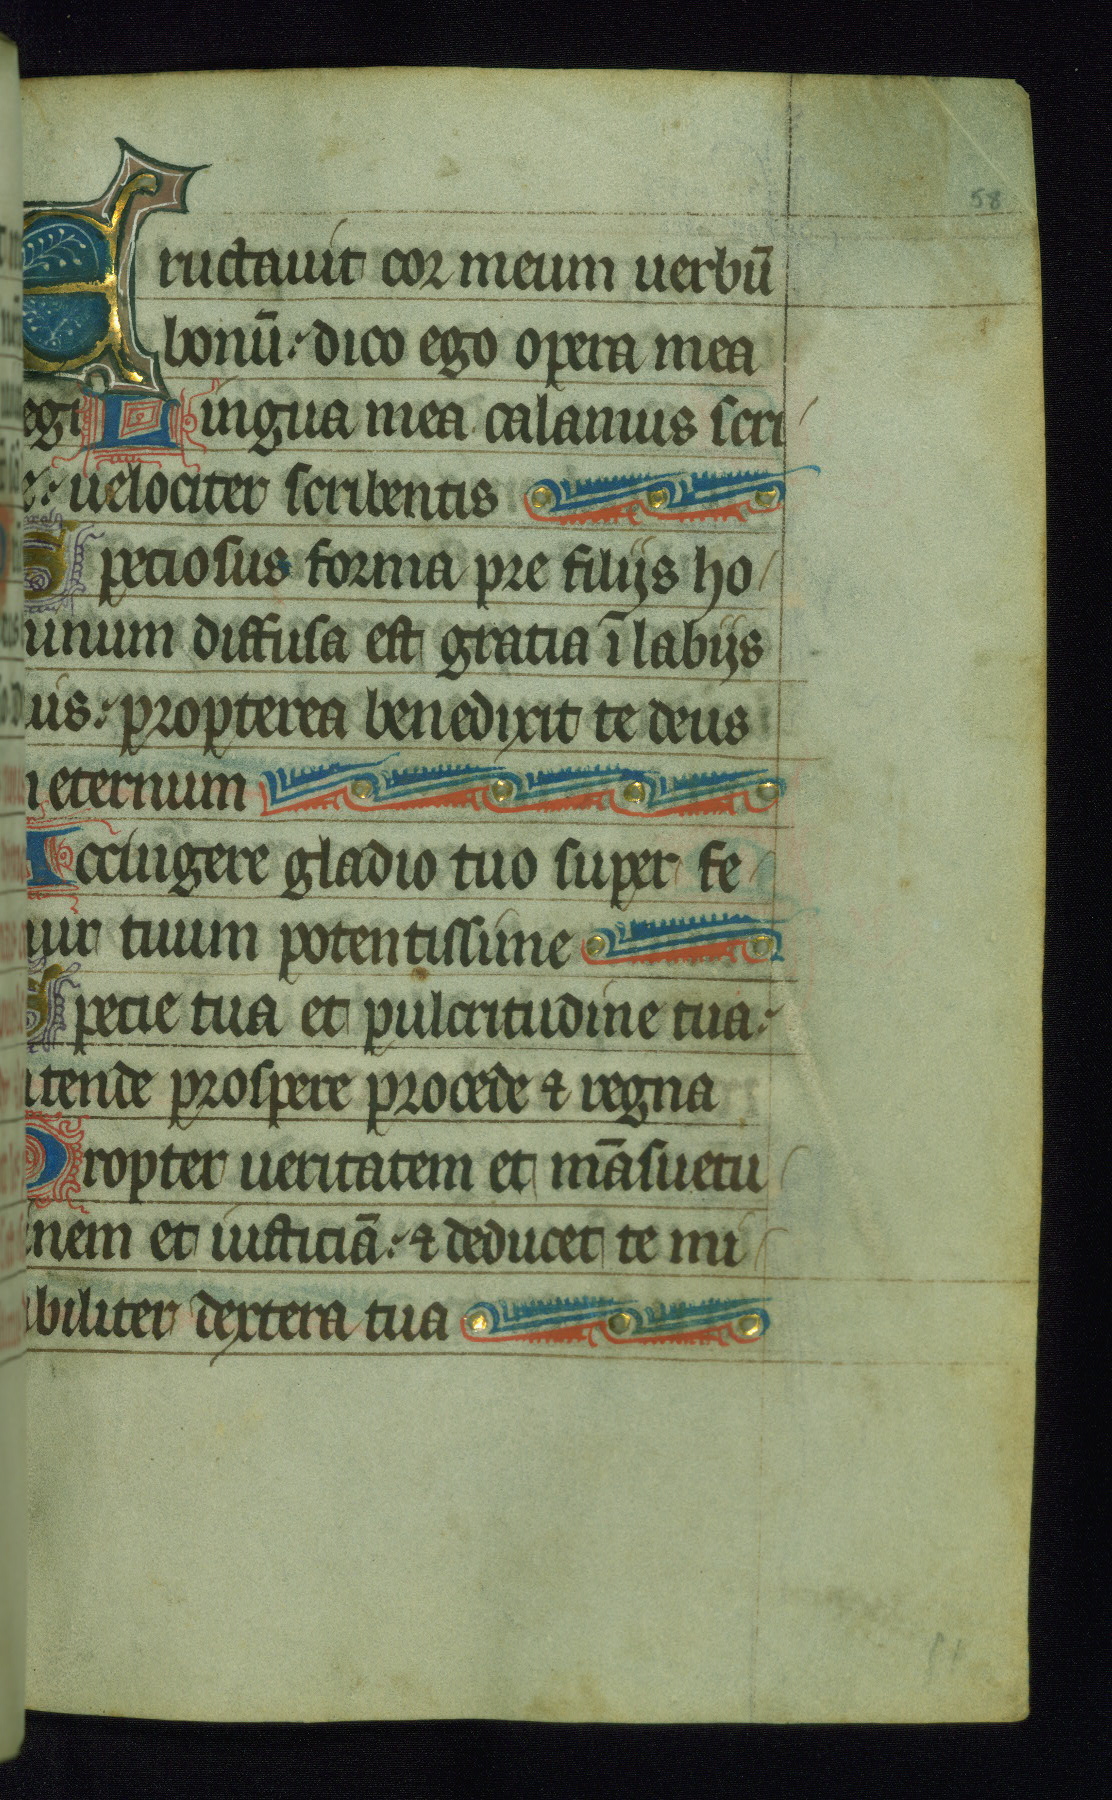 58
Eructauit cor meum uerbū
bonū: dico ego opera mea
egi Lingua mea calamus scri
e: uelociter scribentis
Speciosus forma pre filijs ho
unum diffusa est gratia ī labijs
uis: propterea benedixit te deus
n eternum
Accingere gladio tuo super fe
uir tuum potentissime
Specie tua et pulcritudine tua:
ntende prospere procede & regna
Propter ueritatem et māsuetu
inem et iusticiā: & deducet te mi
abiliter dextera tua